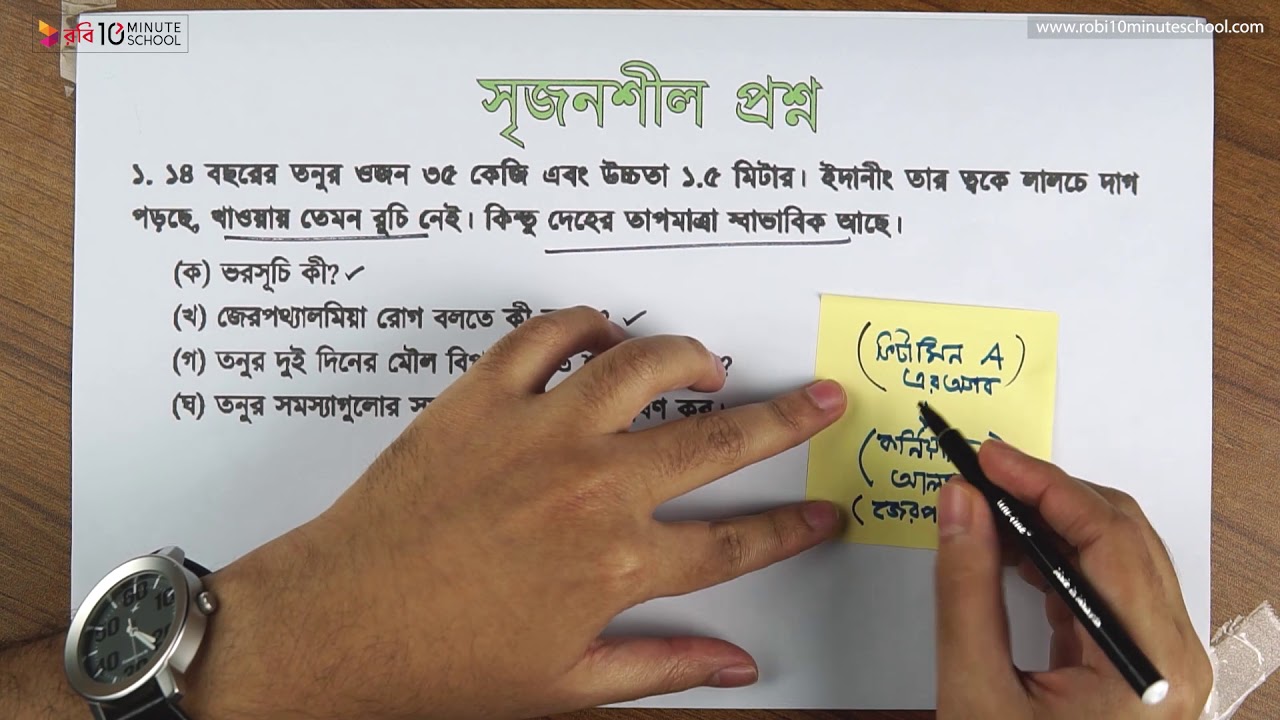 রবি 10 MINUTE SCHOOL
www.robi10minuteschool.com
সৃজনশীল প্রশ্ন
১. ১৪ বছরের তনুর ওজন ৩৫ কেজি এবং উচ্চতা ১.৫ মিটার। ইদানীং তার ত্বকে লালচে দাগ
পড়ছে, খাওয়ায় তেমন রুচি নেই। কিন্তু দেহের তাপমাত্রা স্বাভাবিক আছে।
(ক) ভরসূচি কী?
(খ) জেরপথ্যালমিয়া রোগ বলতে কী
(গ) তনুর দুই দিনের মৌল ?
(ঘ) তনুর সমস্যাগুলোর কর।
(ভিটামিন A)
এর অভাব